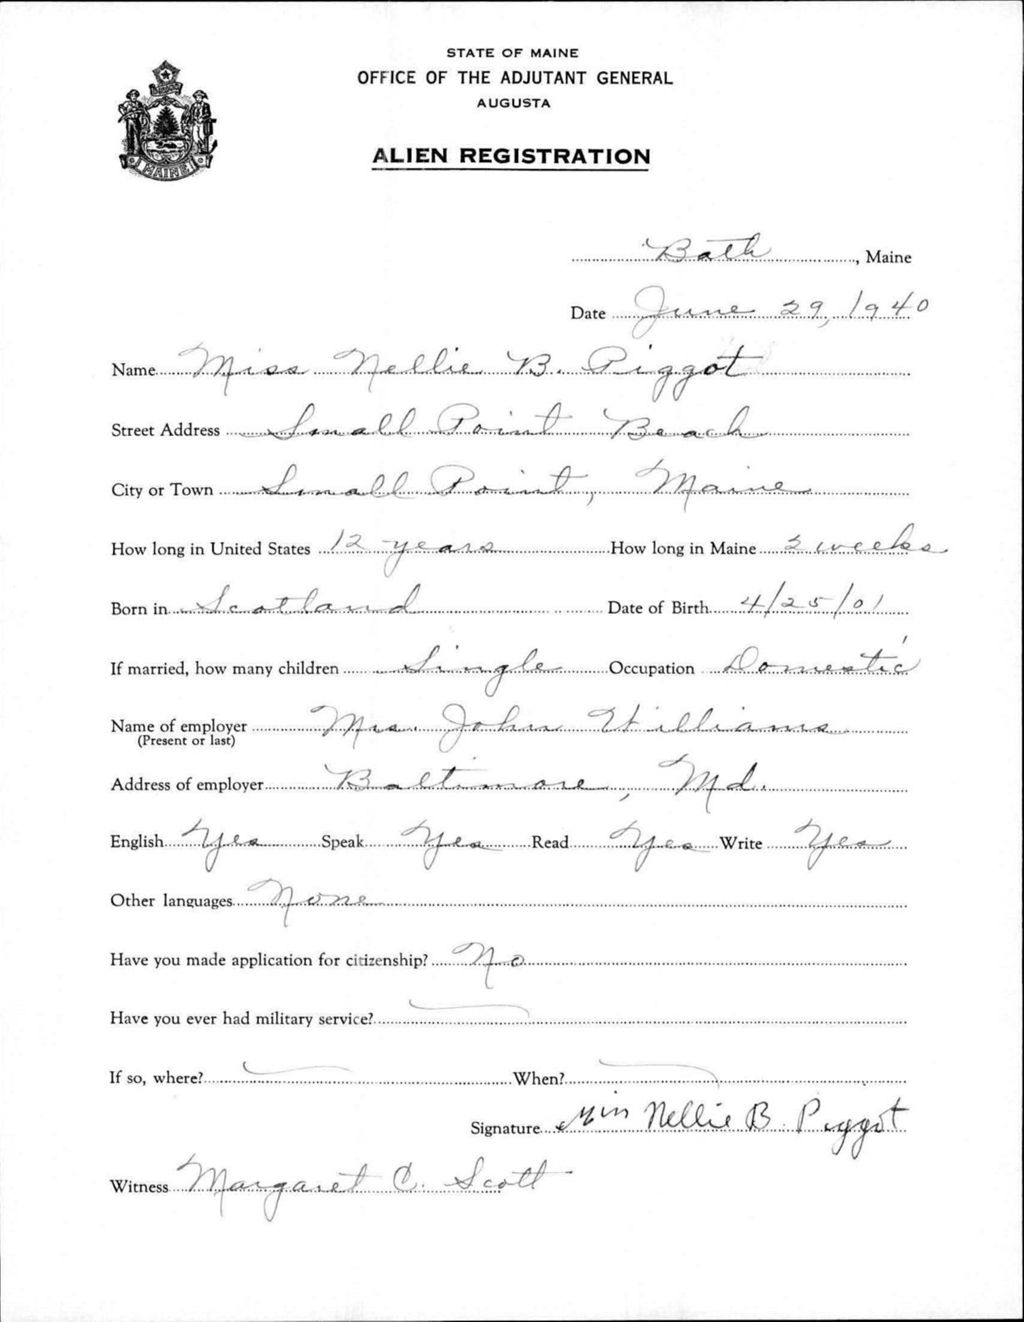 STATE OF MAINE
OFFICE OF THE ADJUTANT GENERAL
AUGUSTA
ALIEN REGISTRATION
MAINE
Bath, Maine
Date June 29, 1940
Name Miss Nellie B. Piggot
Street Address Small Point Beach
City or Town Small Point, Maine
How long in United States 12 years How long in Maine 2 weeks
Born in Scotland Date of Birth 4/25/01
If married, how many children Single Occupation Domestic
Name of employer Mrs. John Williams
(Present or last)
Address of employer Baltimore, Md.
English Yes Speak Yes Read Yes Write Yes
Other languages None
Have you made application for citizenship? No
Have you ever had military service?
If so, where? When?
Signature Miss Nellie B. Piggot
Witness Margaret C. Scott